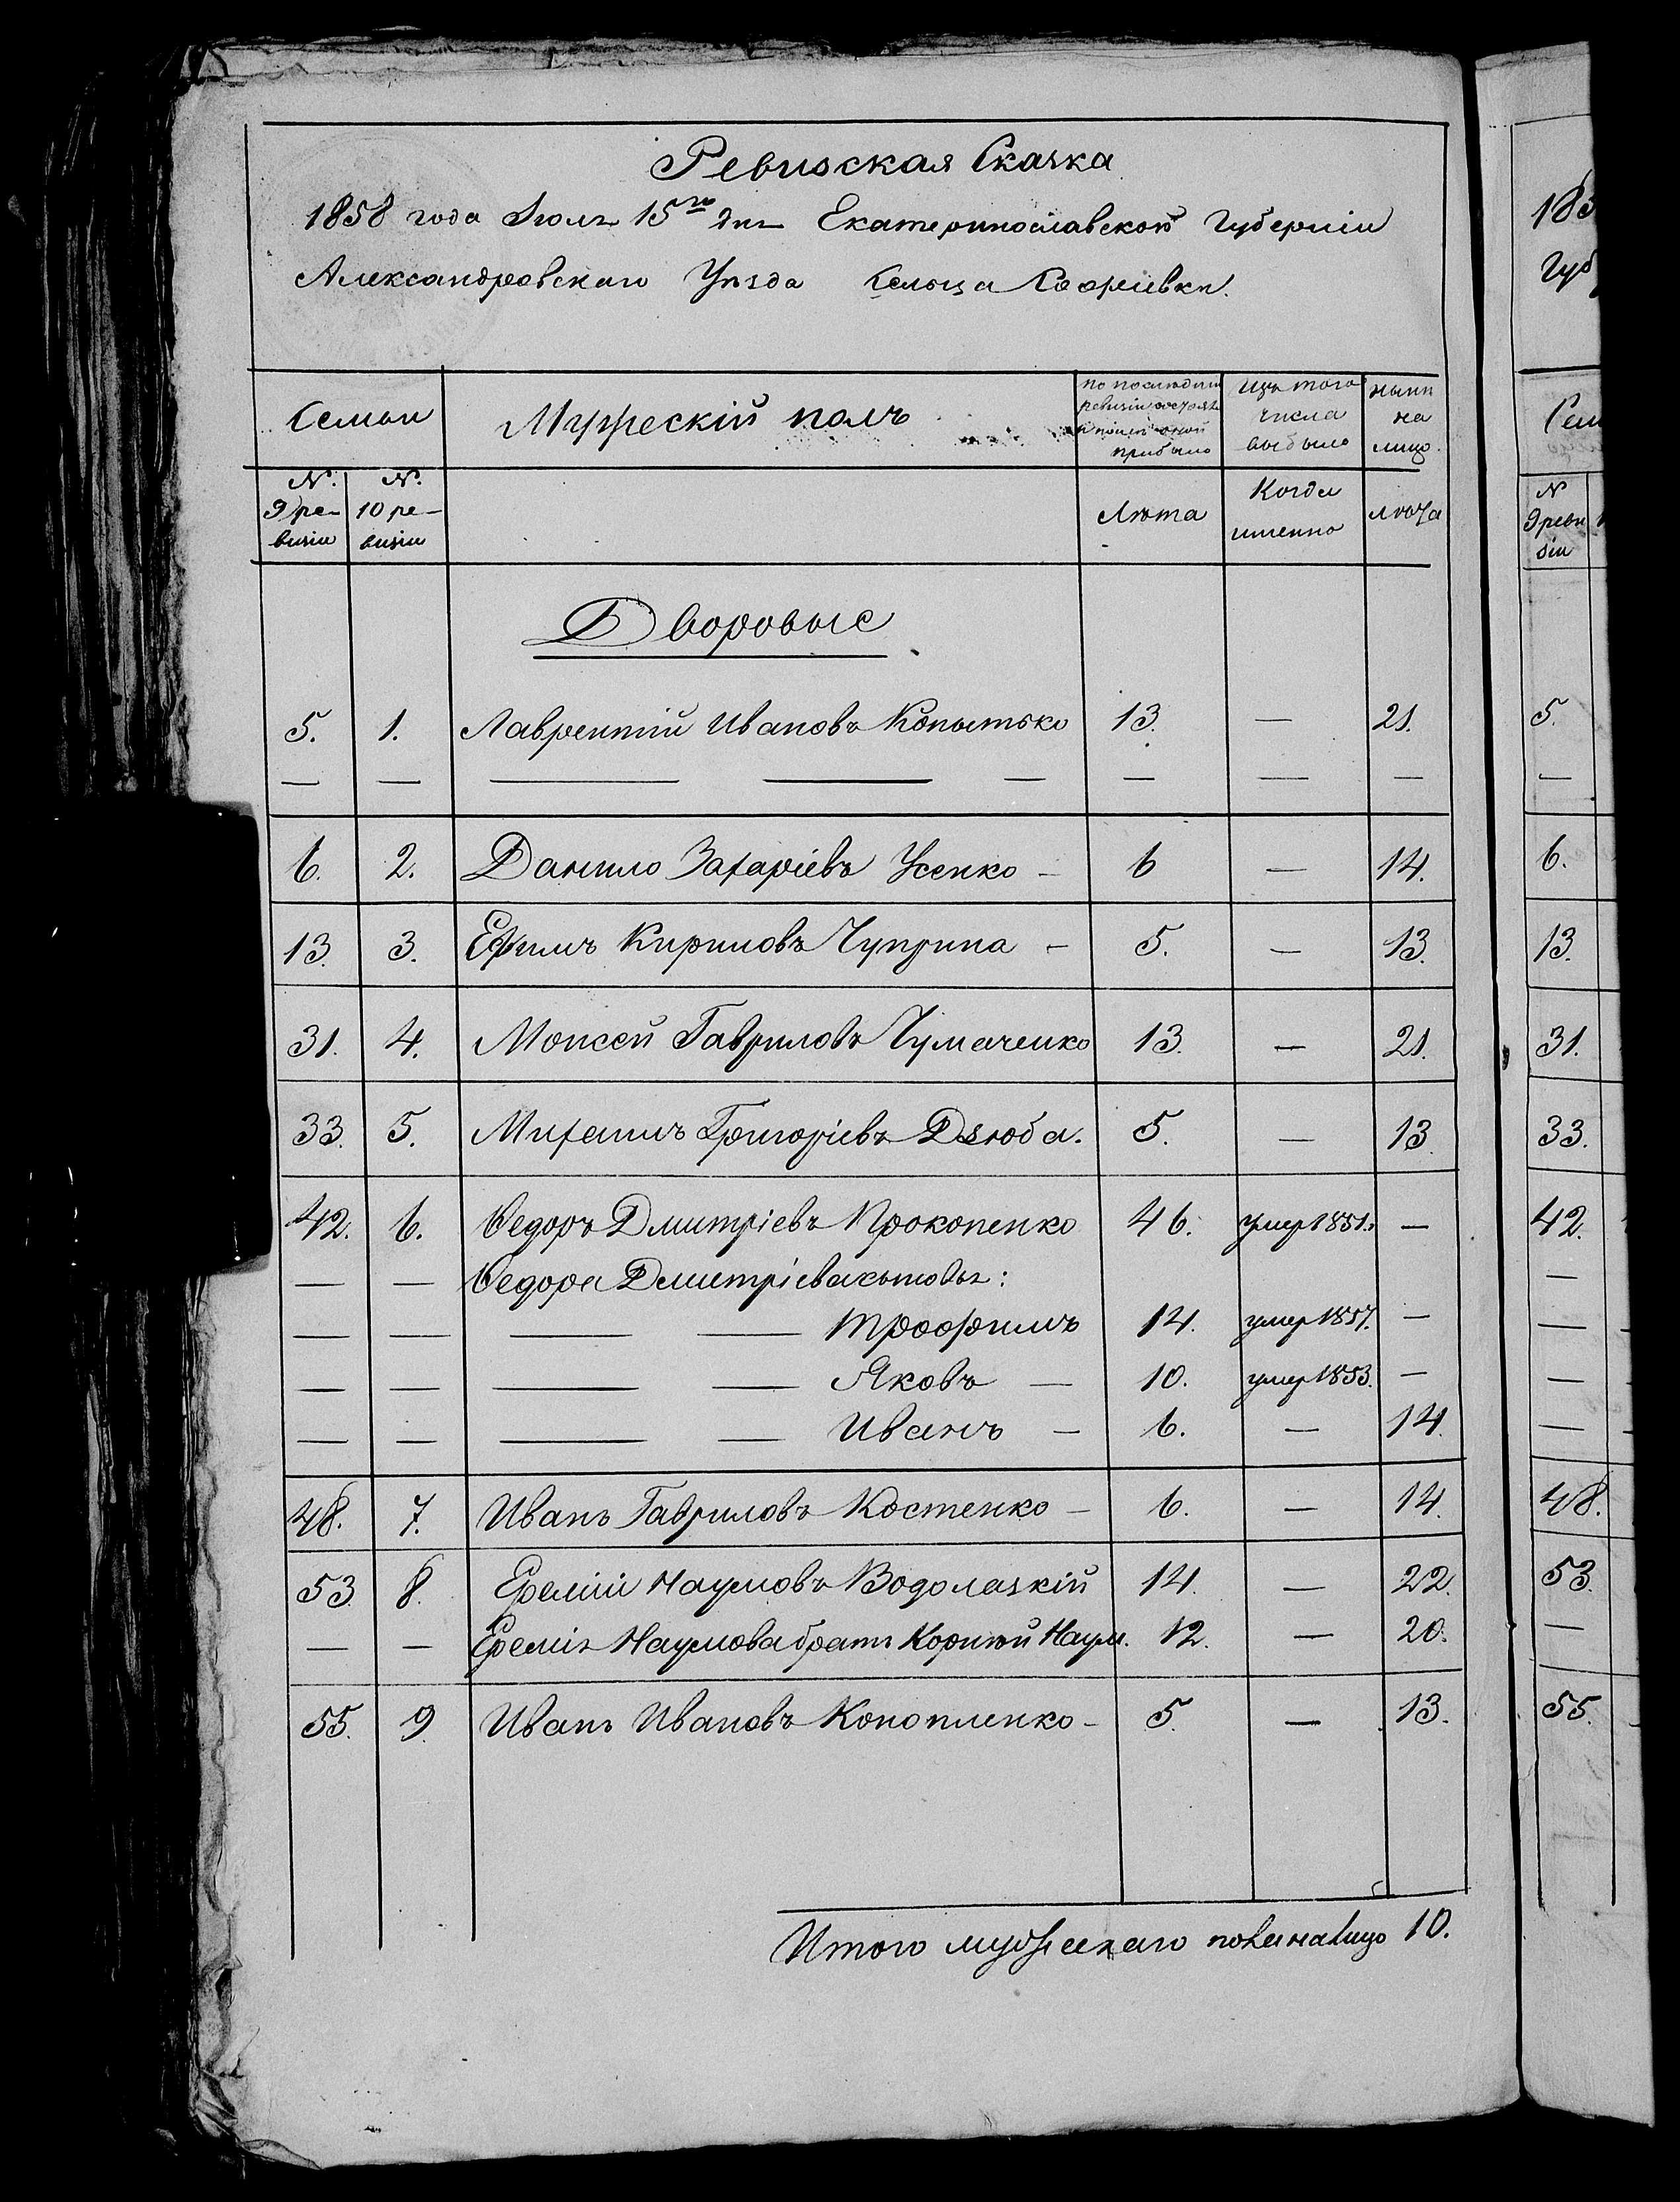 Ревизская Сказка
1858 года Іюля 15го дня Екатеринославской Губерніи
Александровскаго Уѣзда Сельца Софіевки.
Семьи
Мужескій полъ
по послѣдней ревизіи состояло и послѣ оной прибыло
Изъ того числа выбыло
нынѣ на лицо.
N. 9 ре-визіи
N. 10 ре-визіи
Лѣта
Когда именно
лѣта
Дворовые
5. 1. Лаврентій Ивановъ Копытько 13. — 21.
— — — — — — — —
6. 2. Данило Захаріевъ Усенко — 6 — 14.
13. 3. Ефимъ Кириловъ Чуприна — 5. — 13.
31. 4. Моисей Гавриловъ Чумаченко 13. — 21.
33. 5. Михаилъ Григоріевъ Дзюба. 5. — 13.
42. 6. Ѳедоръ Дмитріевъ Прокопенко 46. умер 1851. —
— — Ѳедора Дмитріева сыновья:
— — — — Трофимъ 14. умер 1857. —
— — — — Яковъ — 10. умер 1853. —
— — — — Иванъ — 6. — 14.
48. 7. Иванъ Гавриловъ Костенко — 6. — 14.
53. 8. Еремій Наумовъ Водолазкій 14. — 22.
— — Еремія Наумова братъ Корнѣй Наум. 12. — 20.
55. 9. Иванъ Ивановъ Конопленко — 5. — 13.
Итого мужескаго пола на лицо 10.
185
Губ
Сем
N 9 реви зіи
5.
—
6.
13.
31.
33.
42.
—
—
—
—
48.
53.
—
55.